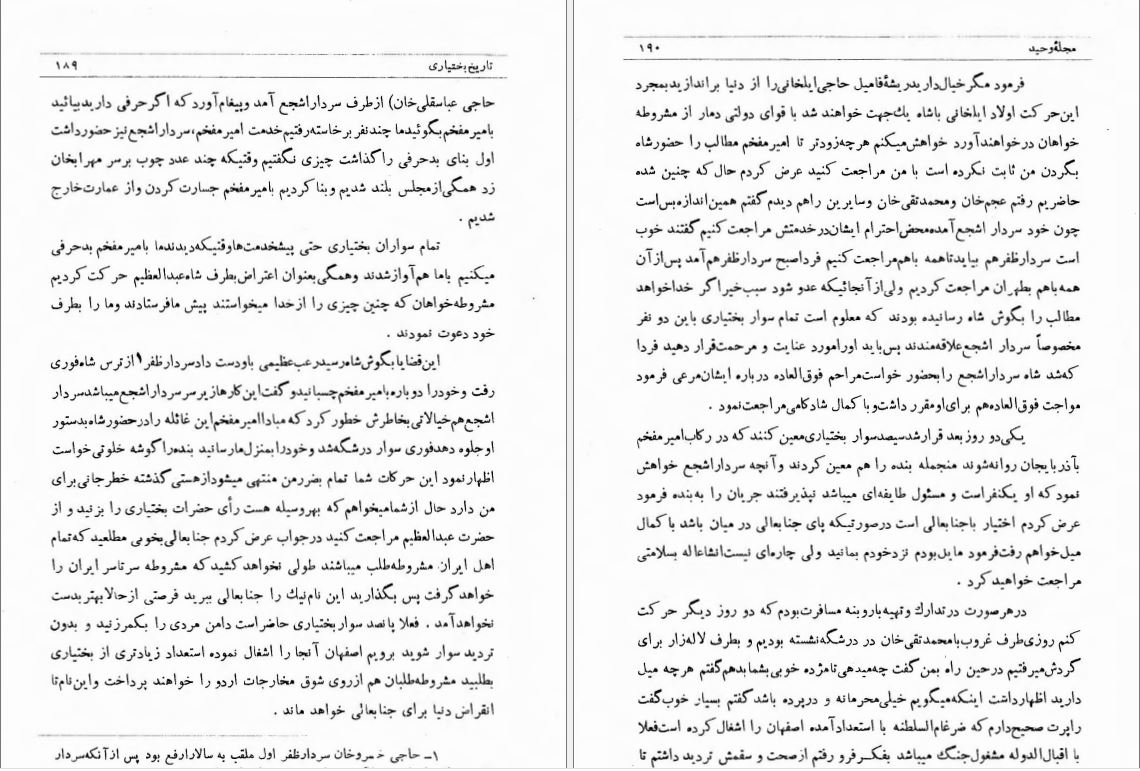 تاریخ بختیاری ۱۸۹
حاجی عباسقلی‌خان) از طرف سردار اشجع آمد و پیغام آورد که اگر حرفی دارید بیائید
با امیر مفخم بگوئید ما چند نفر برخاسته رفتیم خدمت امیر مفخم، سردار اشجع نیز حضور داشت
اول بنای بدحرفی را گذاشت چیزی نگفتیم وقتیکه چند عدد چوب بر سر مهرابخان
زد همگی از مجلس بلند شدیم و بنا کردیم با میر مفخم جسارت کردن و از عمارت خارج
شدیم .
تمام سواران بختیاری حتی پیشخدمت‌ها وقتیکه دیدند ما با میر مفخم بدحرفی
میکنیم با ما هم آواز شدند و همگی بعنوان اعتراض بطرف شاه عبدالعظیم حرکت کردیم
مشروطه خواهان که چنین چیزی را از خدا میخواستند پیش ما فرستادند و ما را بطرف
خود دعوت نمودند .
این قضایا بگوش شاه رسید رعب عظیمی باو دست داد سردار ظفر۱ از ترس شاه فوری
رفت و خود را دوباره بامیر مفخم چسبانید و گفت این کارها زیر سر سردار اشجع میباشد سردار
اشجع هم خیالاتی بخاطرش خطور کرد که مبادا امیر مفخم این غائله را در حضور شاه بدستور
او جلوه دهد فوری سوار درشگه شد و خود را بمنزل ما رسانید بنده را گوشه خلوتی خواست
اظهار نمود این حرکات شما تمام بضرر من منتهی میشود از هستی گذشته خطر جانی برای
من دارد حال از شما میخواهم که بهر وسیله هست رأی حضرات بختیاری را بزنید و از
حضرت عبدالعظیم مراجعت کنید در جواب عرض کردم جنابعالی بخوبی مطلعید که تمام
اهل ایران مشروطه طلب میباشند طولی نخواهد کشید که مشروطه سرتاسر ایران را
خواهد گرفت پس بگذارید این نام نیک را جنابعالی ببرید فرصتی از حالا بهتر بدست
نخواهد آمد . فعلا پانصد سوار بختیاری حاضر است دامن مردی را بکمر زنید و بدون
تردید سوار شوید برویم اصفهان آنجا را اشغال نموده استعداد زیادتری از بختیاری
بطلبید مشروطه طلبان هم از روی شوق مخارجات اردو را خواهند پرداخت و این نام تا
انقراض دنیا برای جنابعالی خواهد ماند .
۱ـ حاجی خسروخان سردار ظفر اول ملقب به سالار ارفع بود پس از آنکه سردار
مجلهٔ وحید ۱۹۰
فرمود مگر خیال دارید ریشهٔ فامیل حاجی ایلخانی را از دنیا براندازید بمجرد
این حرکت اولاد ایلخانی باشاه یک جهت خواهند شد با قوای دولتی دمار از مشروطه
خواهان در خواهند آورد خواهش میکنم هر چه زودتر تا امیر مفخم مطالب را حضور شاه
بگردن من ثابت نکرده است با من مراجعت کنید عرض کردم حال که چنین شده
حاضریم رفتم عجم‌خان و محمدتقی‌خان و سایرین را هم دیدم گفتم همین اندازه بس است
چون خود سردار اشجع آمده محض احترام ایشان در خدمتش مراجعت کنیم گفتند خوب
است سردار ظفر هم بیاید تا همه باهم مراجعت کنیم فردا صبح سردار ظفر هم آمد پس از آن
همه باهم بطهران مراجعت کردیم ولی از آنجائیکه عدو شود سبب خیر اگر خدا خواهد
مطالب را بگوش شاه رسانیده بودند که معلوم است تمام سوار بختیاری باین دو نفر
مخصوصاً سردار اشجع علاقه‌مندند پس باید او را مورد عنایت و مرحمت قرار دهید فردا
که شد شاه سردار اشجع را بحضور خواست مراحم فوق‌العاده درباره ایشان مرعی فرمود
مواجب فوق‌العاده هم برای او مقرر داشت و با کمال شادکامی مراجعت نمود .
یکی دو روز بعد قرار شد سیصد سوار بختیاری معین کنند که در رکاب امیر مفخم
بآذربایجان روانه شوند منجمله بنده را هم معین کردند و آنچه سردار اشجع خواهش
نمود که او یکنفر است و مسئول طایفه‌ای میباشد نپذیرفتند جریان را به بنده فرمود
عرض کردم اختیار با جنابعالی است در صورتیکه پای جنابعالی در میان باشد با کمال
میل خواهم رفت فرمود مایل بودم نزد خودم بمانید ولی چاره‌ای نیست انشاءاله بسلامتی
مراجعت خواهید کرد .
در هر صورت در تدارک و تهیه بار و بنه مسافرت بودم که دو روز دیگر حرکت
کنم روزی طرف غروب با محمدتقی‌خان در درشگه نشسته بودیم و بطرف لاله‌زار برای
گردش میرفتیم در حین راه بمن گفت چه میدهی تا مژده خوبی بشما بدهم گفتم هر چه میل
دارید اظهار داشت اینکه میگویم خیلی محرمانه و در پرده باشد گفتم بسیار خوب گفت
راپرت صحیح دارم که ضرغام‌السلطنه با استعداد آمده اصفهان را اشغال کرده است فعلا
با اقبال‌الدوله مشغول جنگ میباشد بفکر فرو رفتم از صحت و سقمش تردید داشتم تا